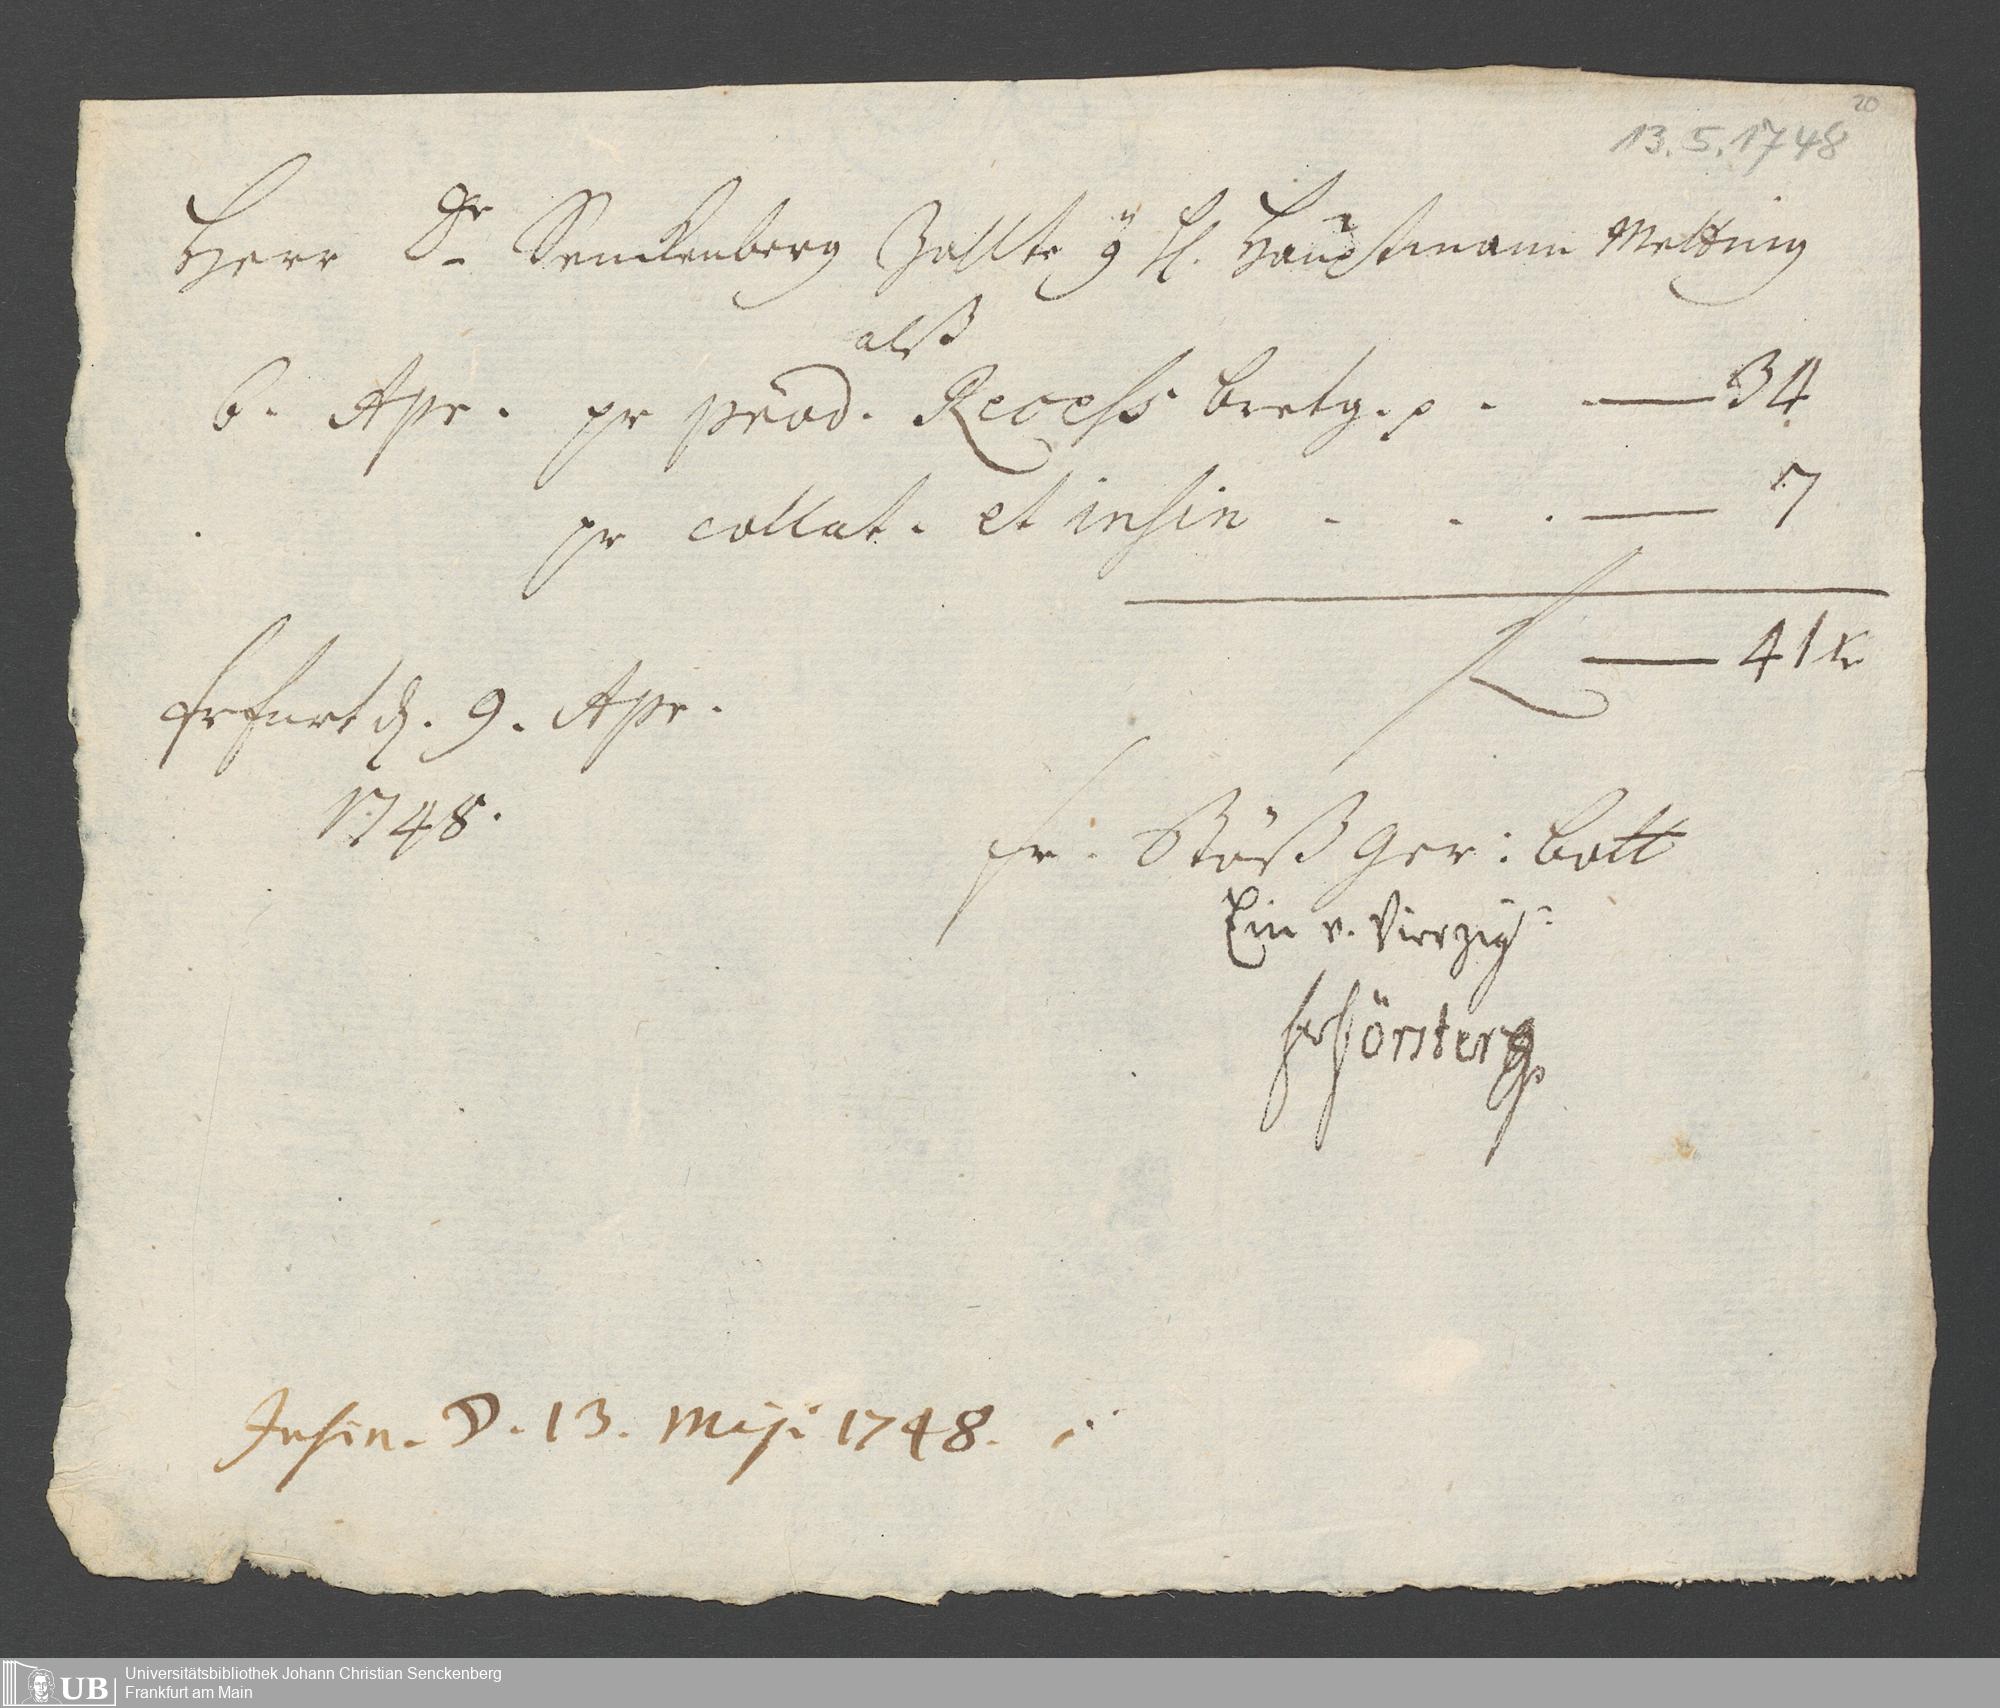 20
13.5.1748
Herr Dr Senckenberg Zallte H. Hauptmann Metting
alß
6. Apr. pr prod. Recess betg. p. — 34
pr collat. et insin . . . — 7
— 41 kr
Erfurt d. 9. Apr.
1748.
Fr. Stöß Ger: Bott
Ein v. Vierzig
Insin. D. 13. Maji 1748.
UB
Universitätsbibliothek Johann Christian Senckenberg
Frankfurt am Main